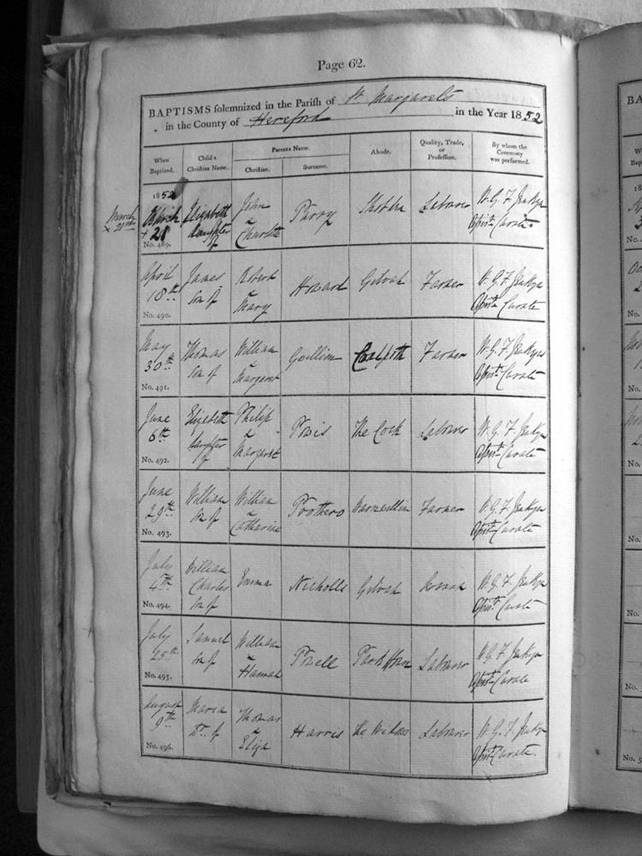 Page 62.
BAPTISMS solemnized in the Parish of St Margarets
in the County of Hereford in the Year 1852
When Baptized. Child's Christian Name. Parents Name. Christian. Surname. Abode. Quality, Trade, or Profession. By whom the Ceremony was performed.
1852
March 21st
March Elizabeth John Parry Labourer W. G. F. Jenkyn
21 daughter of & Charlotte Offg. Curate
No. 489.
April James Robert Howard Gilvach Farmer W. G. F. Jenkyn
18th son of & Mary Curate
No. 490.
May Thomas William Farmer W. G. F. Jenkyn
30th son of & Margaret Curate
No. 491.
June Elizabeth Philip Powis The Cock Labourer W. G. F. Jenkyn
6th daughter of & Margaret Curate
No. 492.
June William William Prothero Farmer W. G. F. Jenkyn
29th son of & Catharine Curate
No. 493.
July William Emma Nicholls Gilvach W. G. F. Jenkyn
4th Charles son of Curate
No. 494.
July Samuel William Powell Park House Labourer W. G. F. Jenkyn
25th son of & Hannah Curate
No. 495.
August Maria Thomas Harris Labourer W. G. F. Jenkyn
9th Dr. of & Eliza Curate.
No. 496.